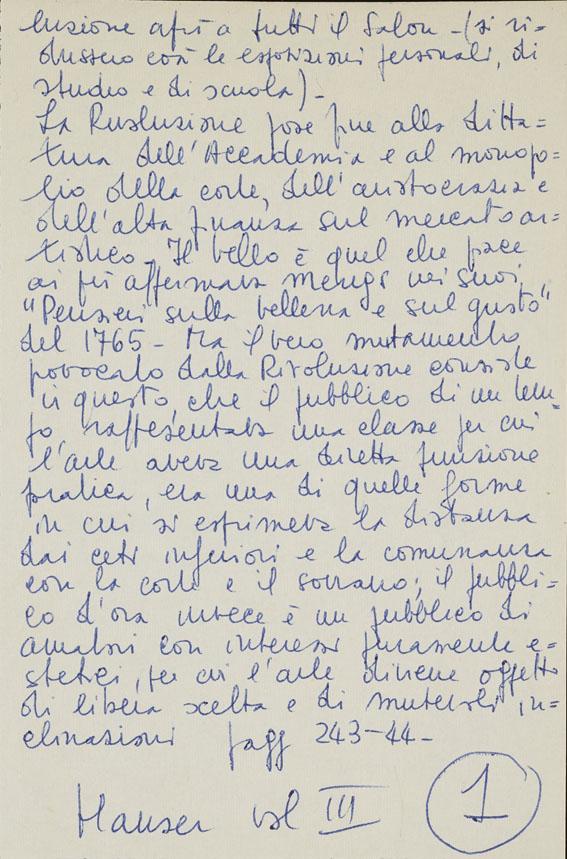 luzione aprì a tutti il Salon - (si ri=
dussero così le esposizioni personali, di
studio e di scuola) -
La Rivoluzione pose fine alla ditta=
tura dell'Accademia e al monopo=
lio della corte, dell'aristocrazia e
dell'alta finanza sul mercato ar=
tistico - Il bello è quel che piace
ai più affermava Mengs nei suoi
"Pensieri sulla bellezza e sul gusto"
del 1765 - Ma il vero mutamento
provocato dalla Rivoluzione consiste
in questo, che il pubblico di un tem=
po, rappresentava una classe per cui
l'arte aveva una diretta funzione
pratica, era una di quelle forme
in cui si esprimeva la distanza
dai ceti inferiori e la comunanza
con la corte e il sovrano; il pubbli=
co d'ora invece è un pubblico di
amatori con interessi puramente e=
stetici, per cui l'arte diviene oggetto
di libera scelta e di mutevoli in=
clinazioni pagg 243-44-
Hauser vol III
1